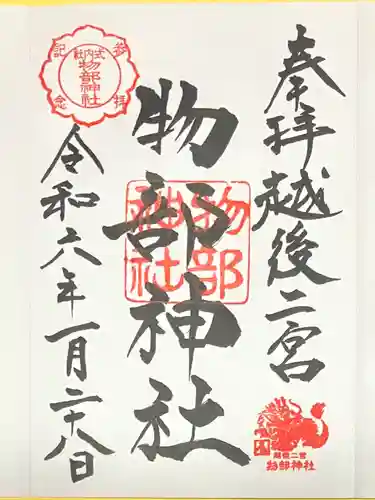 奉拝 越後二宮
物部神社
令和六年一月二十八日
参拝記念
式内社
物部神社
物部神社
越後二宮
物部神社